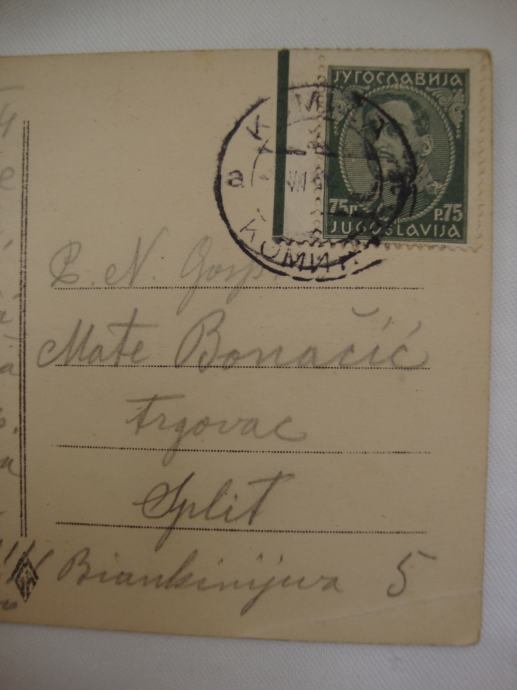 ЈУГОСЛАВИЈА
75 P.75
JUGOSLAVIJA
KOMIŽA
a
VIII
КОМИЖА
P. N. Gosp.
Mate Bonačić
trgovac
Split
Biankinijeva 5